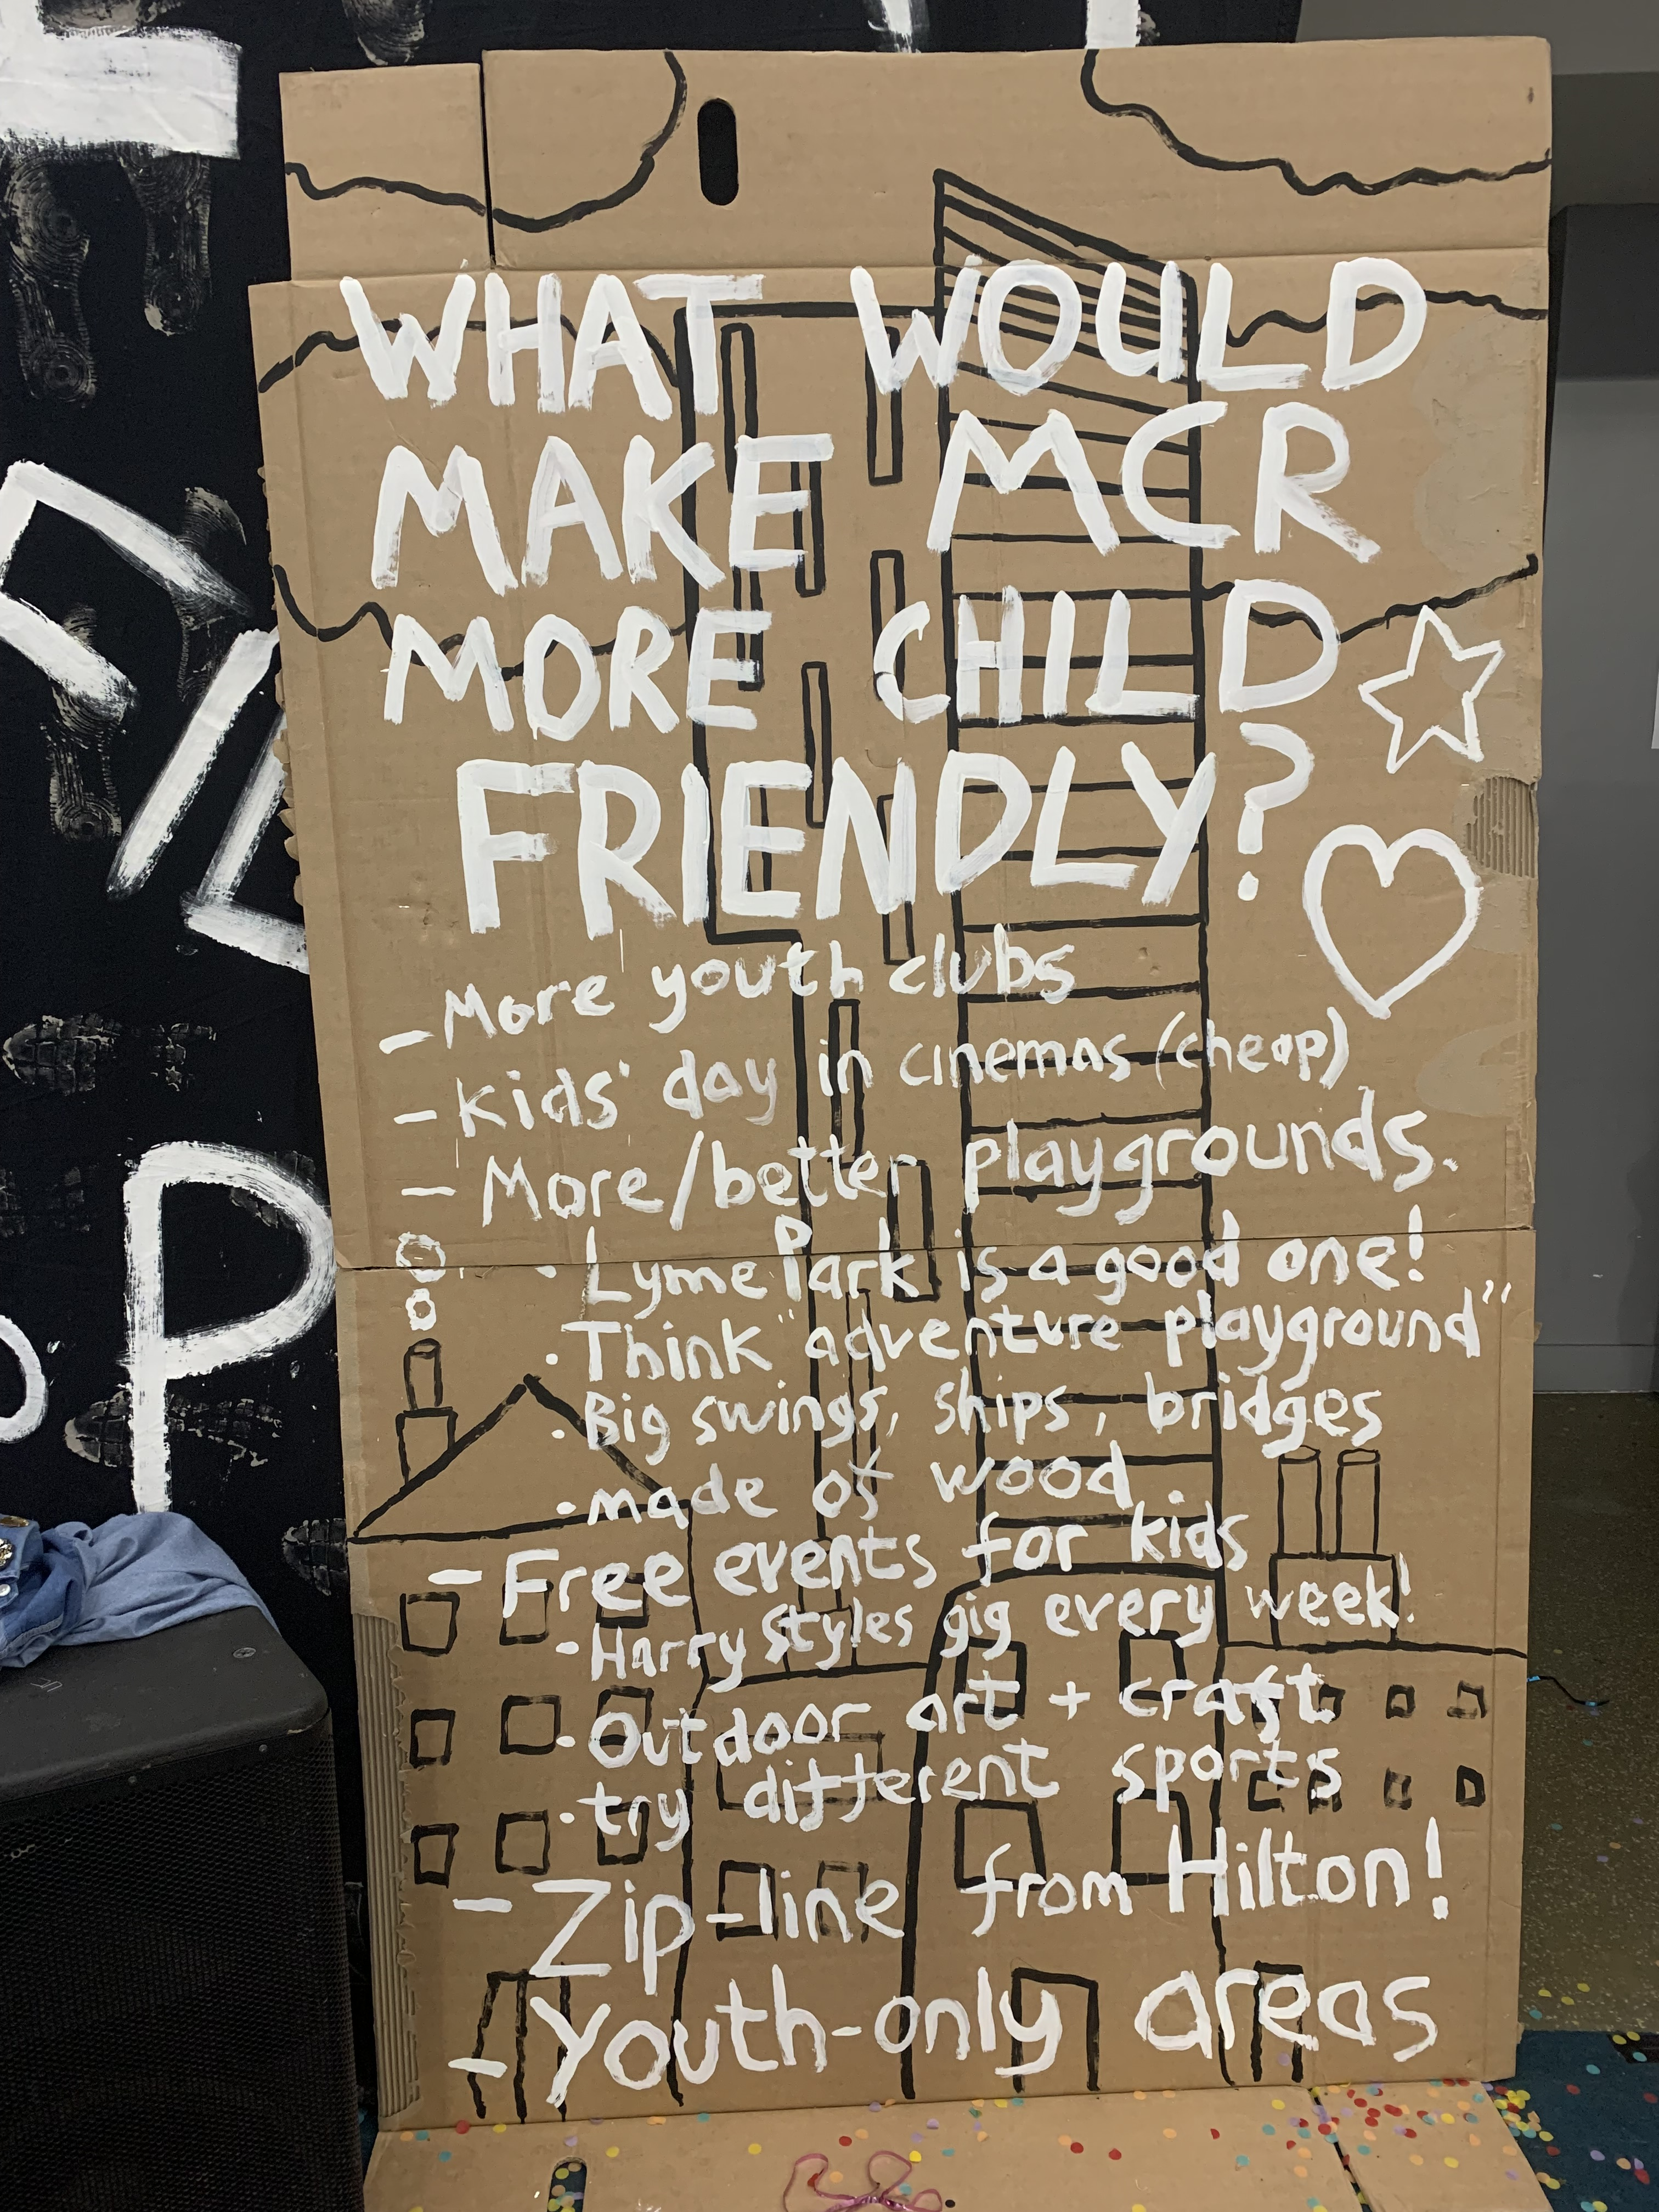 WHAT WOULD
MAKE MCR
MORE CHILD
FRIENDLY?
- More youth clubs
- Kids' day in cinemas (cheap)
- More/better playgrounds.
· Lyme Park is a good one!
· Think "adventure playground"
· Big swings, ships, bridges
· made of wood.
- Free events for kids
· Harry Styles gig every week!
· Outdoor art + craft
· try different sports
- Zip-line from Hilton!
- Youth-only areas
P